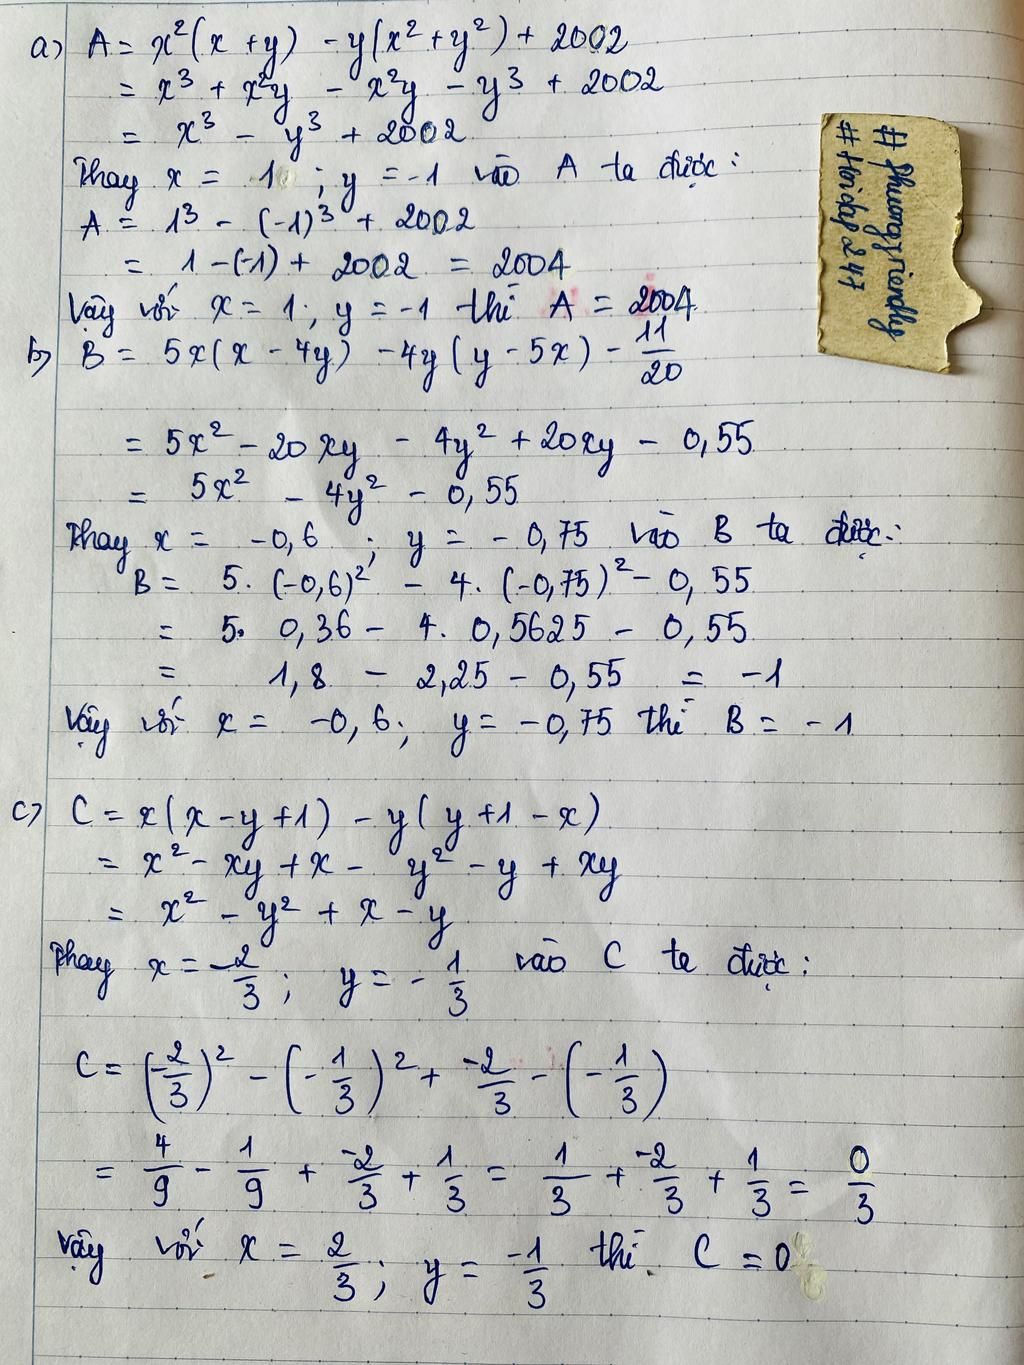 a) A = x²(x + y) - y(x² + y²) + 2002
= x³ + x²y - x²y - y³ + 2002
= x³ - y³ + 2002
Thay x = 1 ; y = -1 vào A ta được :
A = 1³ - (-1)³ + 2002
= 1 - (-1) + 2002 = 2004
Vậy với x = 1 ; y = -1 thì A = 2004
b) B = 5x(x - 4y) - 4y(y - 5x) - 11/20
= 5x² - 20xy - 4y² + 20xy - 0,55
= 5x² - 4y² - 0,55
Thay x = -0,6 ; y = -0,75 vào B ta được :
B = 5. (-0,6)² - 4. (-0,75)² - 0,55
= 5. 0,36 - 4. 0,5625 - 0,55
= 1,8 - 2,25 - 0,55 = -1
Vậy với x = -0,6 ; y = -0,75 thì B = -1
c) C = x(x - y + 1) - y(y + 1 - x)
= x² - xy + x - y² - y + xy
= x² - y² + x - y
Thay x = -2/3 ; y = -1/3 vào C ta được :
C = (-2/3)² - (-1/3)² + -2/3 - (-1/3)
= 4/9 - 1/9 + -2/3 + 1/3 = 1/3 + -2/3 + 1/3 = 0/3
Vậy với x = 2/3 ; y = -1/3 thì C = 0
# Hoidap247